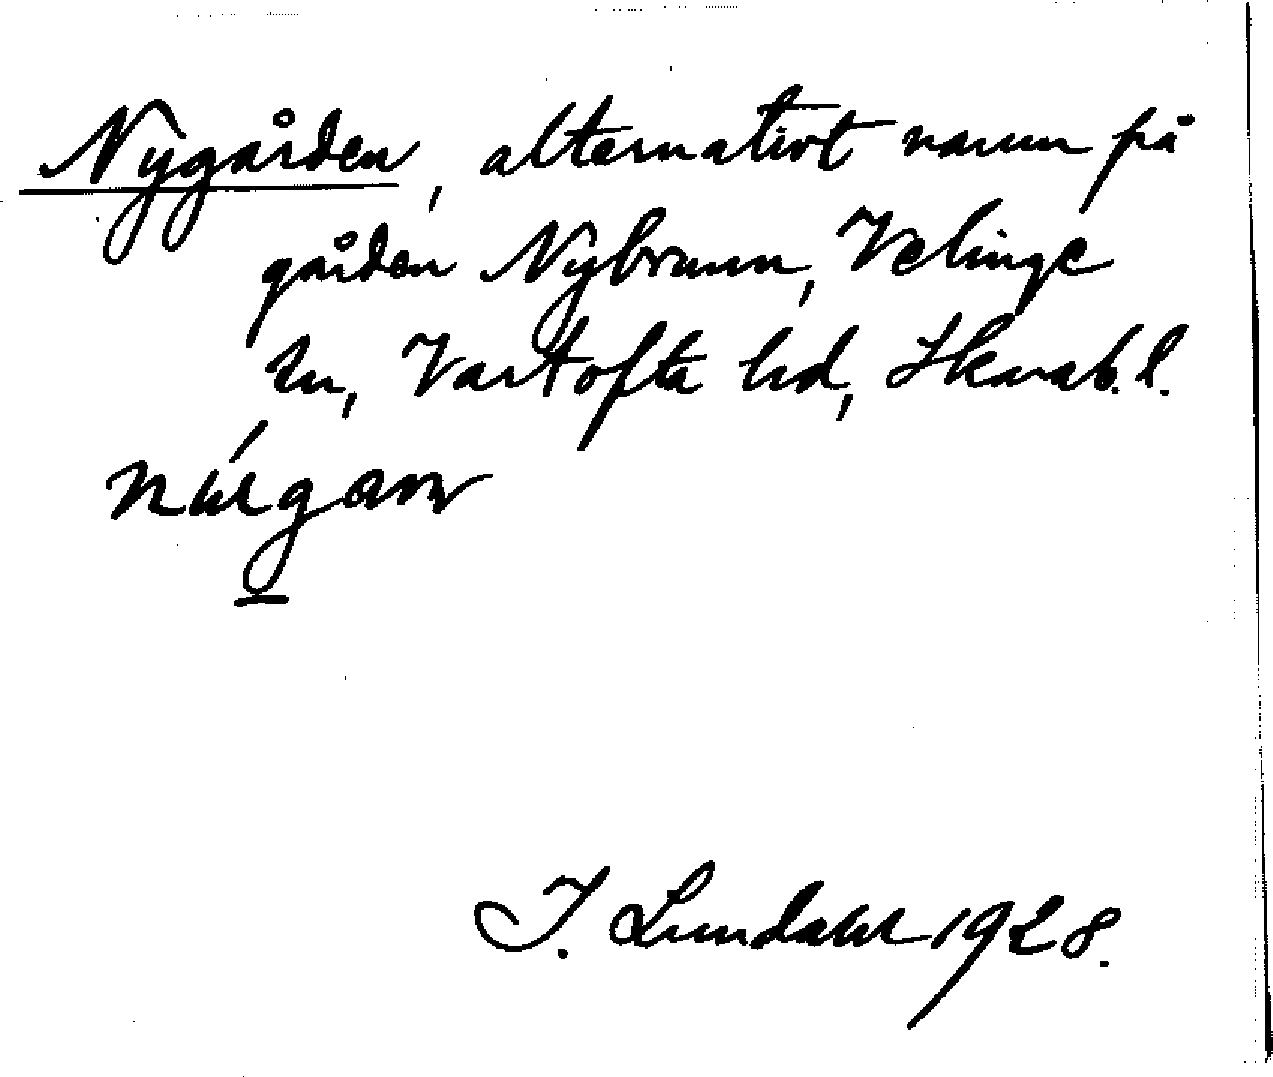 Nygården, alternativt namn på
gården Nybrunn, Velinge
sn, Vartofta hd, Skarab. l.
I. Lundahl 1928.